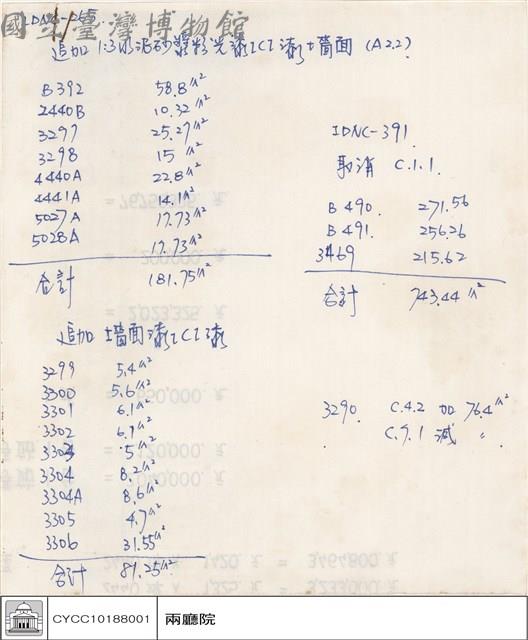 國立臺灣博物館
追加 1:3水泥砂漿粉光漆ICI漆 墻面 (A22)
B392 58.8M²
2440B 10.32M²
3297 25.27M²
3298 15M²
4440A 22.8M²
4441A 14.1M²
5027A 17.73M²
5028A 17.73M²
合計 181.75M²
追加 墻面漆ICI漆
3299 5.4M²
3300 5.6M²
3301 6.1M²
3302 6.9M²
3303 5M²
3304 8.2M²
3304A 8.6M²
3305 4.7M²
3306 31.55M²
合計 81.25M²
IDNC-391
取消 C.1.1.
B490. 271.56
B491. 256.26
3469 215.62
合計 743.44M²
3290. C.4.2 加 76.4M²
C.9.1 減 〃
CYCC10188001 兩廳院